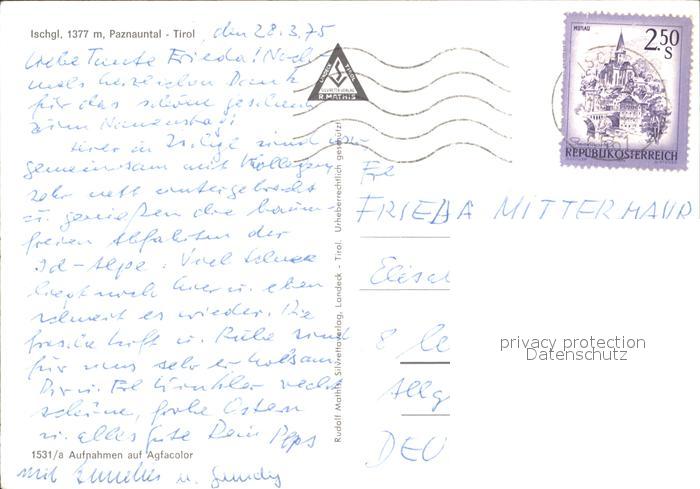 Ischgl, 1377 m, Paznauntal - Tirol
den 28.3.75
Liebe Tante Frieda! Noch
mals herzlichen Dank
für das schöne Geschenk
zum Namenstag!
Hier in Ischgl sind wir
gemeinsam mit Kollegen
sehr nett untergebracht
u. genießen die baum-
freien Abfahrten der
Id-Alpe. Viel Schnee
liegt noch hier u. eben
schneit es wieder. Die
frische Luft u. Ruhe sind
für uns sehr erholsam.
Dir u. Frl recht
schöne, frohe Ostern
u. alles Gute Dein Peps
mit u.
1531/a Aufnahmen auf Agfacolor
R. MATHIS
Rudolf Mathis Silvrettaverlag, Landeck - Tirol. Urheberrechtlich geschützt
MURAU
2.50 S
REPUBLIK ÖSTERREICH
FRIEDA MITTERMAYR
8
Allg
DEU
privacy protection
Datenschutz